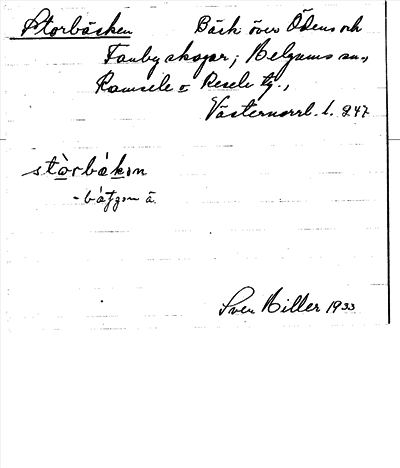 Storbäcken Bäck över Ödens och
Tanby skogar; Helgums sn.,
Ramsele o Resele tg.,
Västernorrl. l. 247
stòrbákın
-bátȷon ā
Sven Hiller 1933